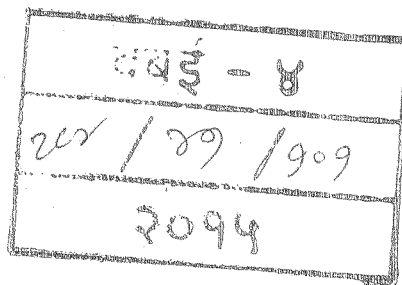 बबई - ४
/ २१ / १०१
२०१५